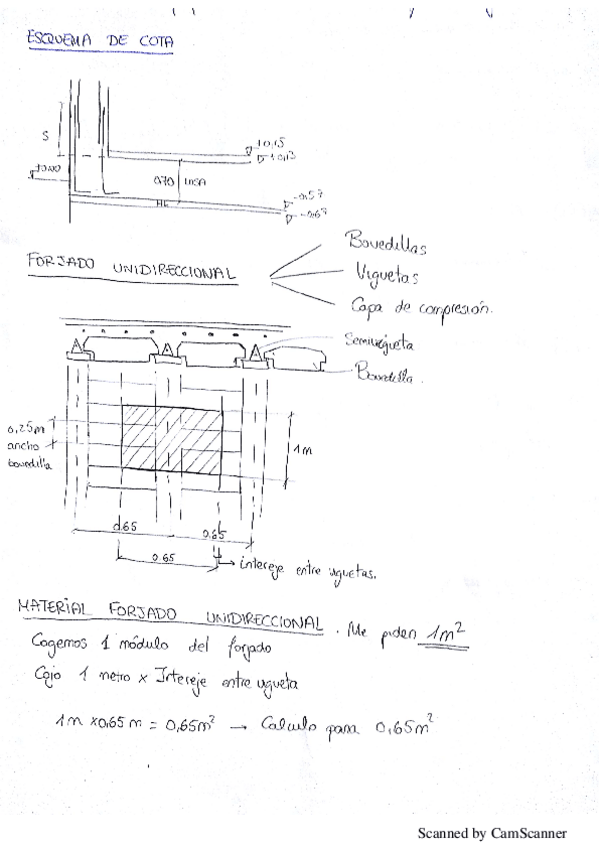 ESQUEMA DE COTA
+0,15
+0,13
S
±0,00
0,70 LOSA
-0,57
HL
-0,67
FORJADO UNIDIRECCIONAL
Bovedillas
Viguetas
Capa de compresión.
Semivigueta
Bovedilla.
0,25m
ancho
bovedilla
1m
0.65
0.65
0.65
intereje entre viguetas.
MATERIAL FORJADO UNIDIRECCIONAL. Me piden 1m²
Cogemos 1 módulo del forjado
Cojo 1 metro x Intereje entre vigueta
1m x0,65m = 0,65m² → Calculo para 0,65m²
Scanned by CamScanner